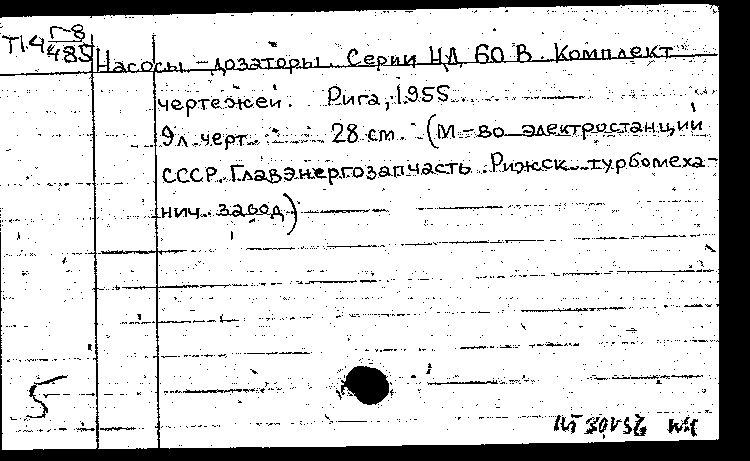 П.4 Г-8/485
Насосы-дозаторы. Серии НД 60 В. Комплект
чертежей. Рига, 1955.
9л. черт. 28 см. (М-во электростанций
СССР. Главэнергозапчасть. Рижск. турбомеха-
нич. завод)
5